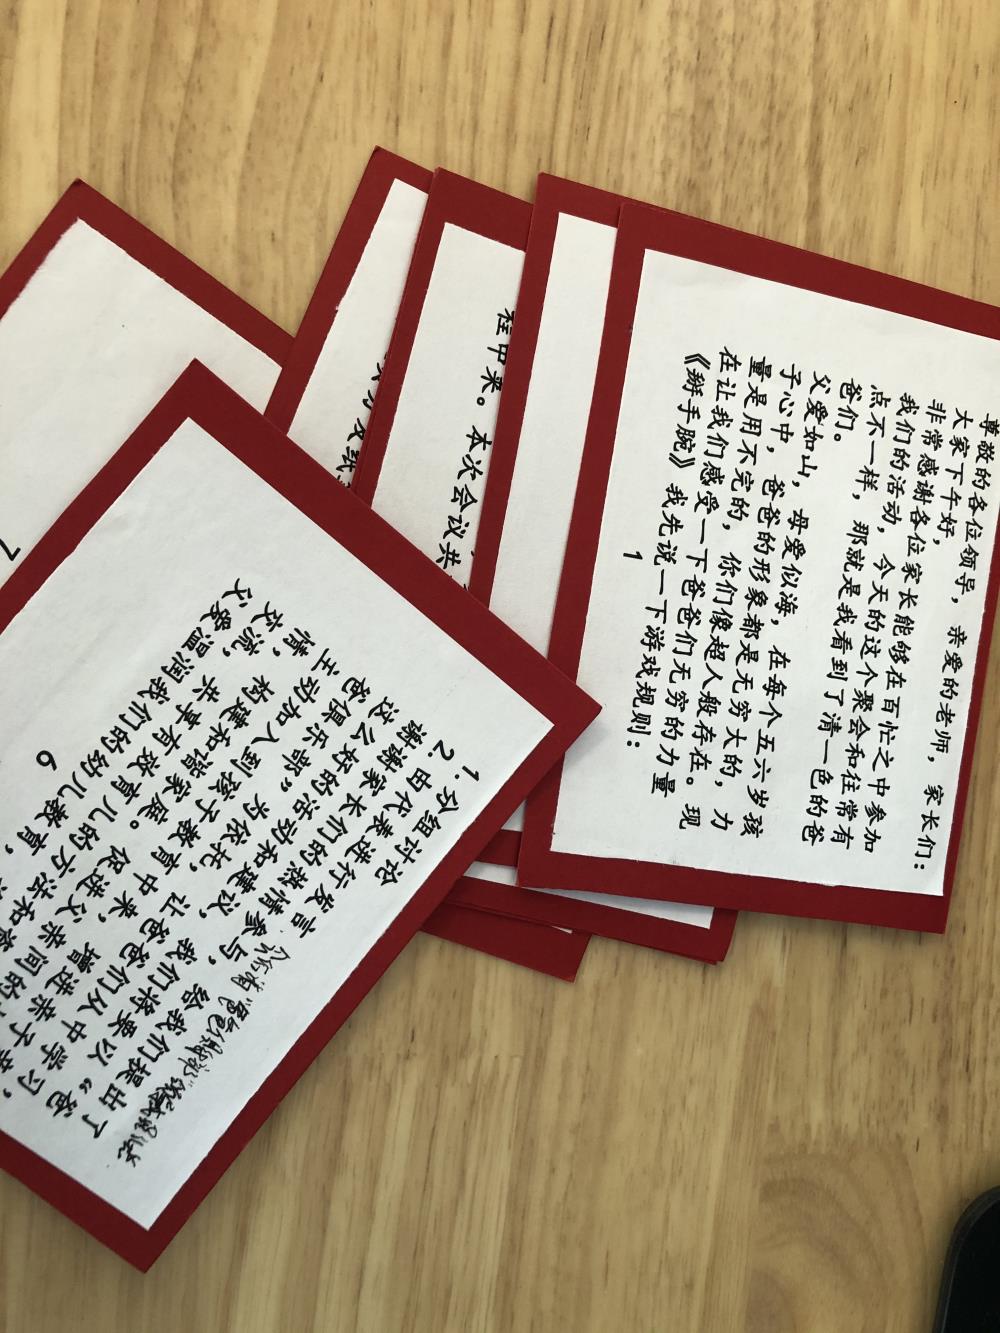 尊敬的各位领导，亲爱的老师，家长们：
大家下午好，
非常感谢各位家长能够在百忙之中参加
我们的活动，今天的这个聚会和往常有
点不一样，那就是我看到了清一色的爸
爸们。
父爱如山，母爱似海，在每个五六岁孩
子心中，爸爸的形象都是无穷大的，力
量是用不完的，你们像超人般存在。现
在让我们感受一下爸爸们无穷的力量
《掰手腕》我先说一下游戏规则：
1
程中来。本次会议共
1.分组讨论
2.由代表进行发言
谢谢家长们的热情参与，给我们提出了
这么好的活动和建议，我们将要以“爸
爸俱乐部”为依托，让爸爸们从中学习，
主动加入到孩子教育中来，增进亲子亲
情，构建和谐家庭。促进父亲间的
交流，共享有效育儿的方法和
父爱温润我们的幼儿教育，
6
7